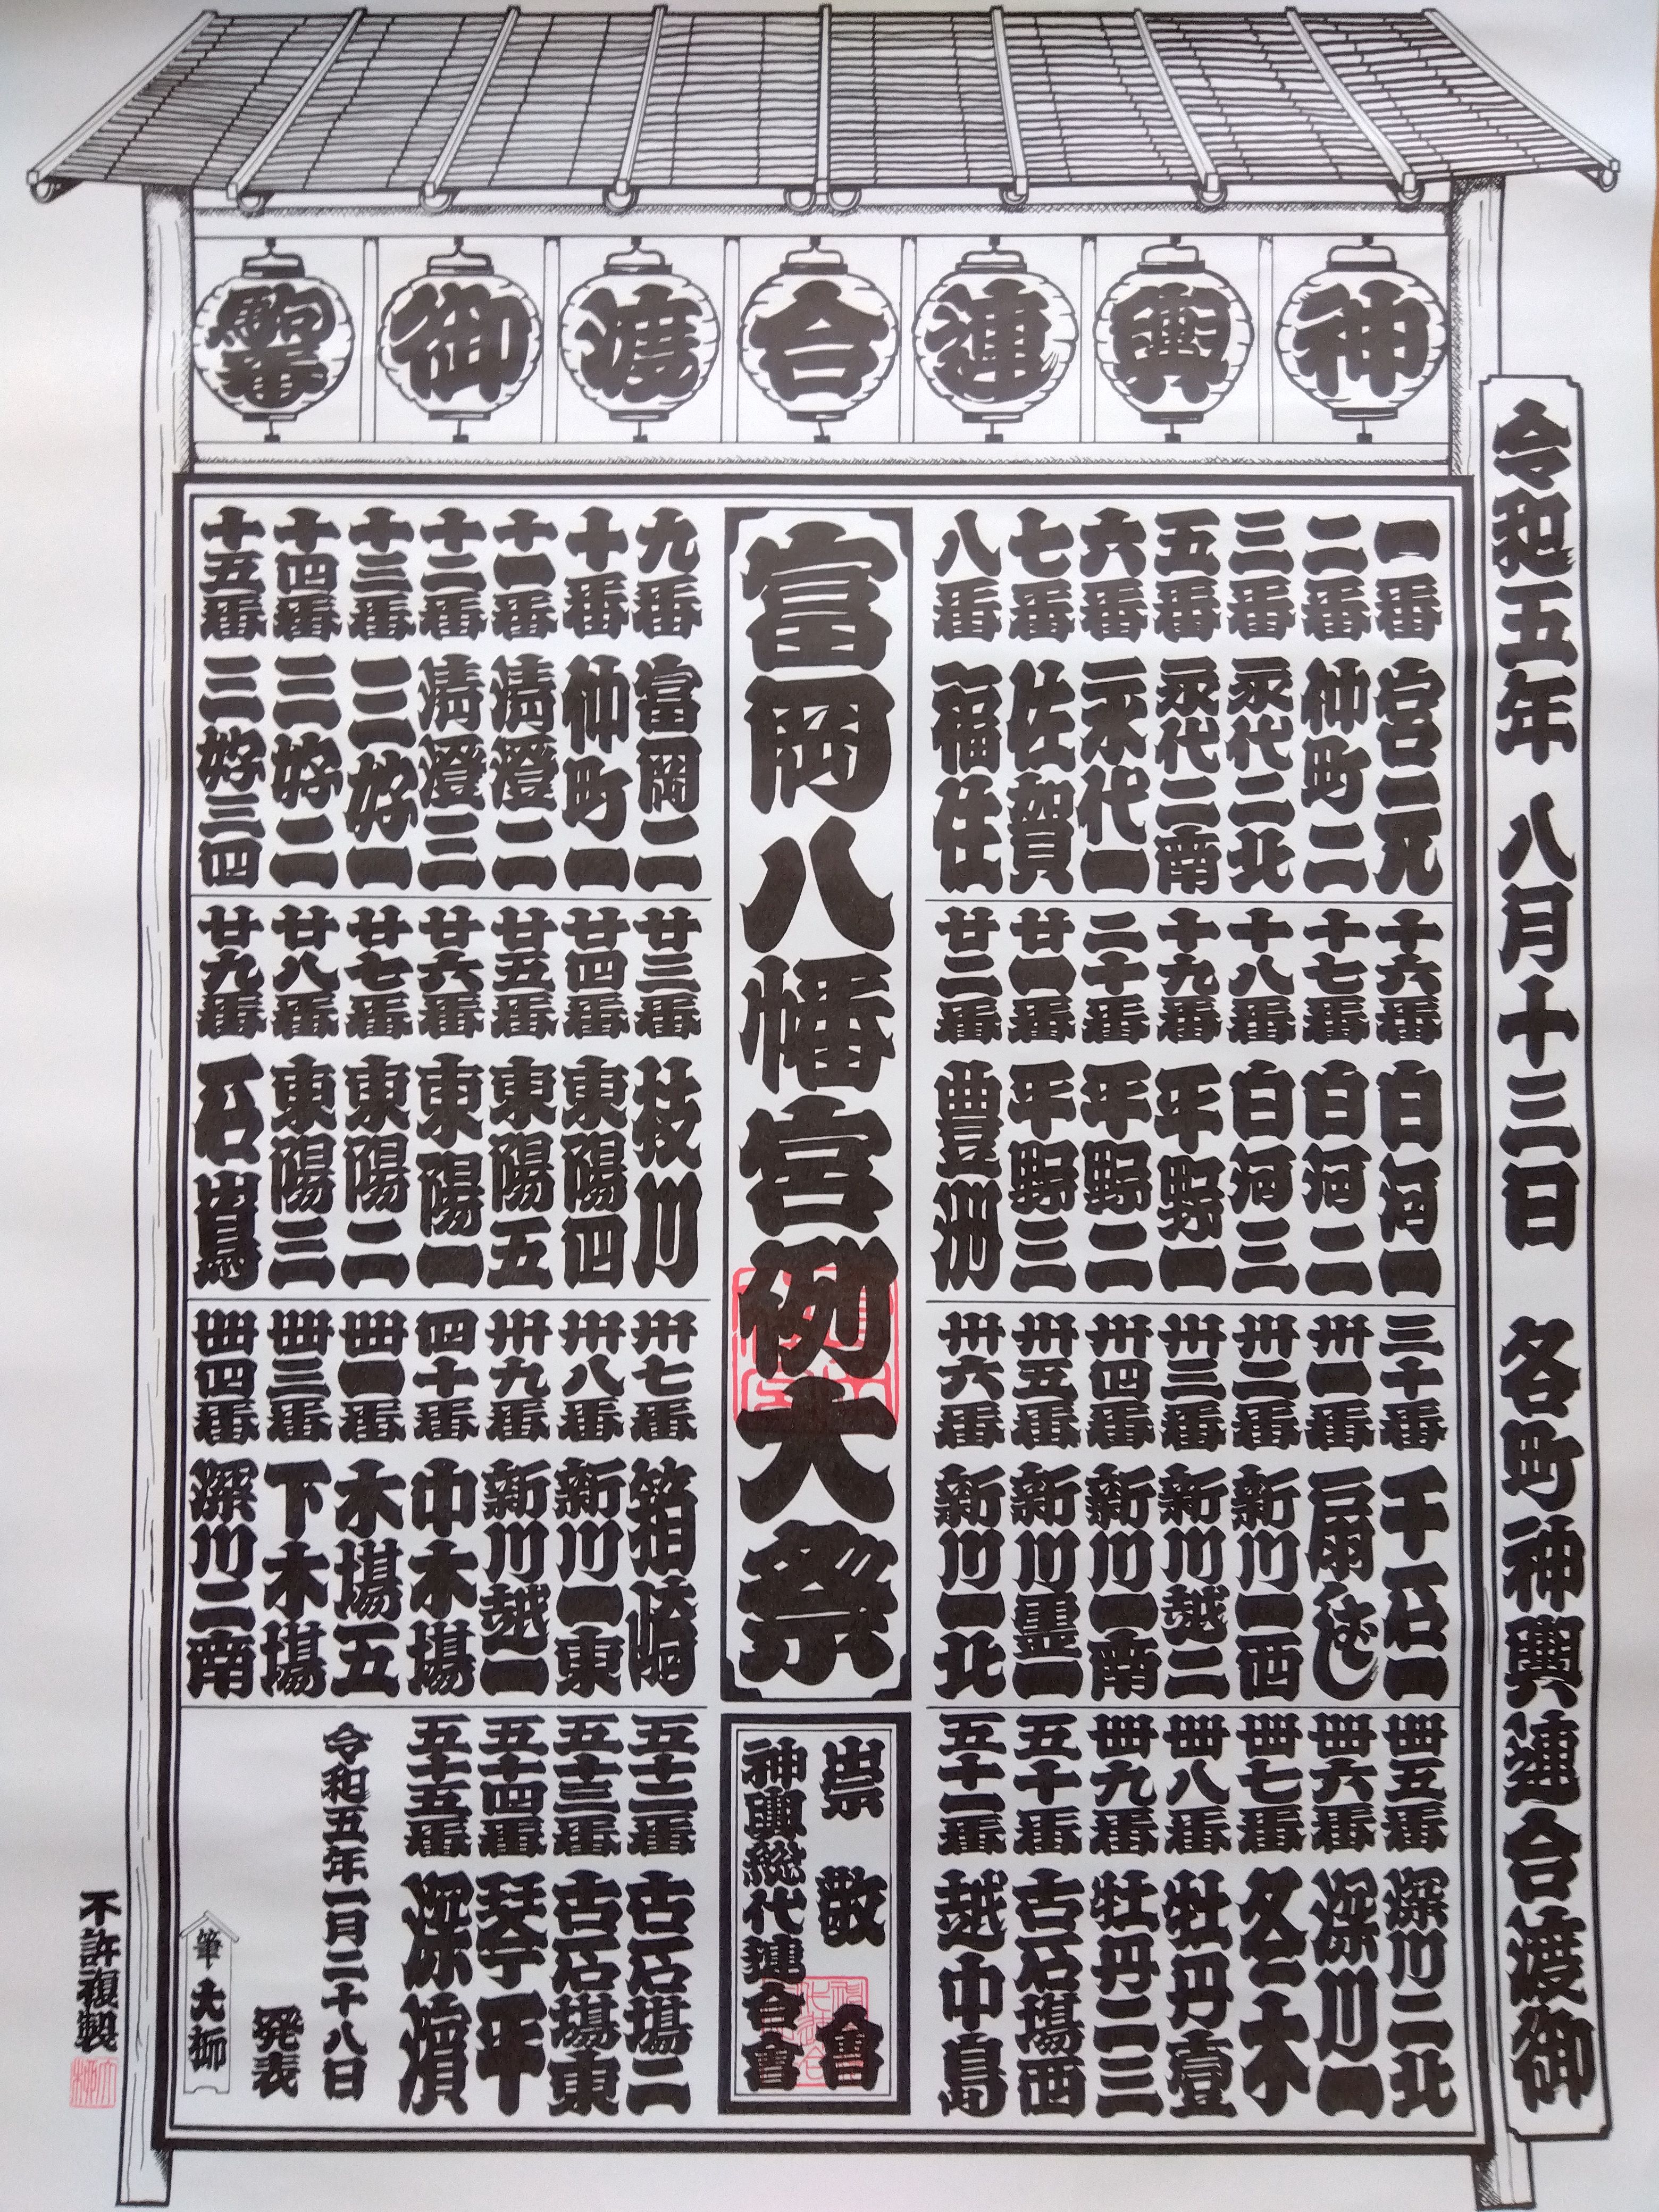 神輿連合渡御駒番
令和五年 八月十三日 各町神輿連合渡御
一番 宮元
二番 仲町二
三番 永代二北
五番 永代二南
六番 永代一
七番 佐賀
八番 福住
富岡八幡宮例大祭
九番 富岡二
十番 仲町一
十一番 清澄二
十二番 清澄三
十三番 三好一
十四番 三好二
十五番 三好三四
十六番 白河一
十七番 白河二
十八番 白河三
十九番 平野一
二十番 平野二
廿一番 平野三
廿二番 豊洲
廿三番 枝川
廿四番 東陽四
廿五番 東陽五
廿六番 東陽一
廿七番 東陽二
廿八番 東陽三
廿九番 石島
三十番 千石一
卅一番 扇ばし
卅二番 新川一西
卅三番 新川越二
卅四番 新川一南
卅五番 新川霊一
卅六番 新川一北
卅七番 箱崎
卅八番 新川一東
卅九番 新川越一
四十番 中木場
卌一番 木場五
卌三番 下木場
卌四番 深川二南
卌五番 深川二北
卌六番 深川一
卌七番 冬木
卌八番 牡丹壹
卌九番 牡丹二三
五十番 古石場西
五十一番 越中島
崇敬會
神輿総代連合會
五十二番 古石場二
五十三番 古石場東
五十四番 琴平
五十五番 深濱
令和五年一月二十八日
発表
筆 大栁
不許複製